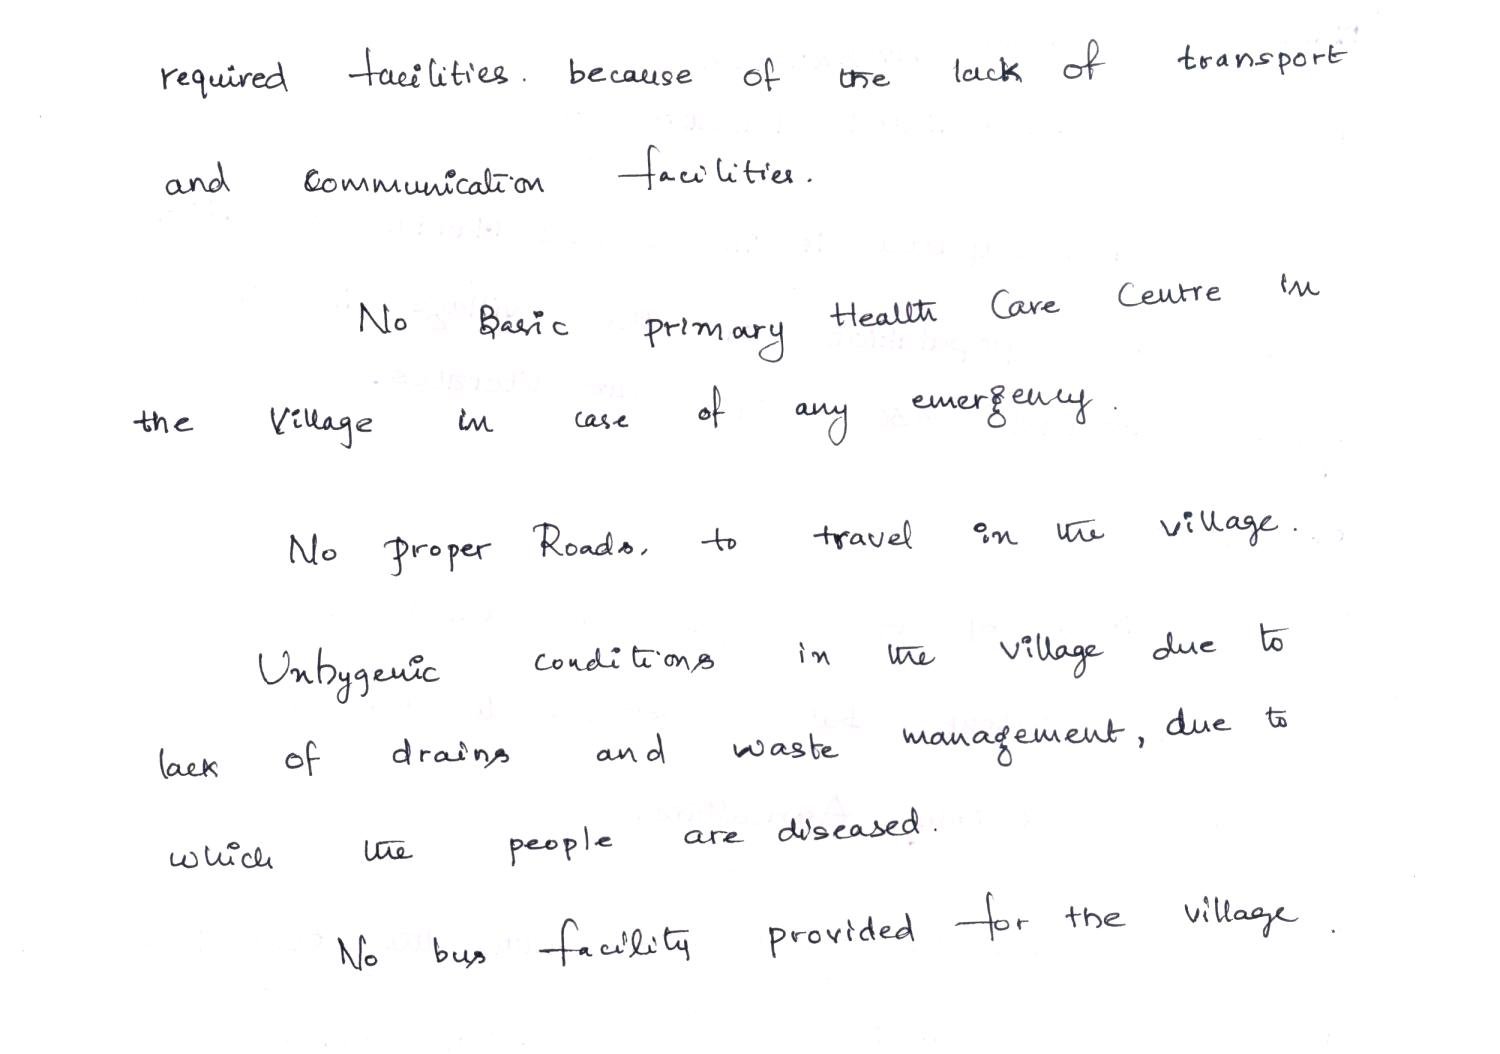 required facilities. because of the lack of transport
and communication facilities.
No Basic primary Health Care Centre in
the Village in case of any emergency.
No proper Roads, to travel in the village.
Unhygenic conditions in the village due to
lack of drains and waste management, due to
which the people are diseased.
No bus facility provided for the village.